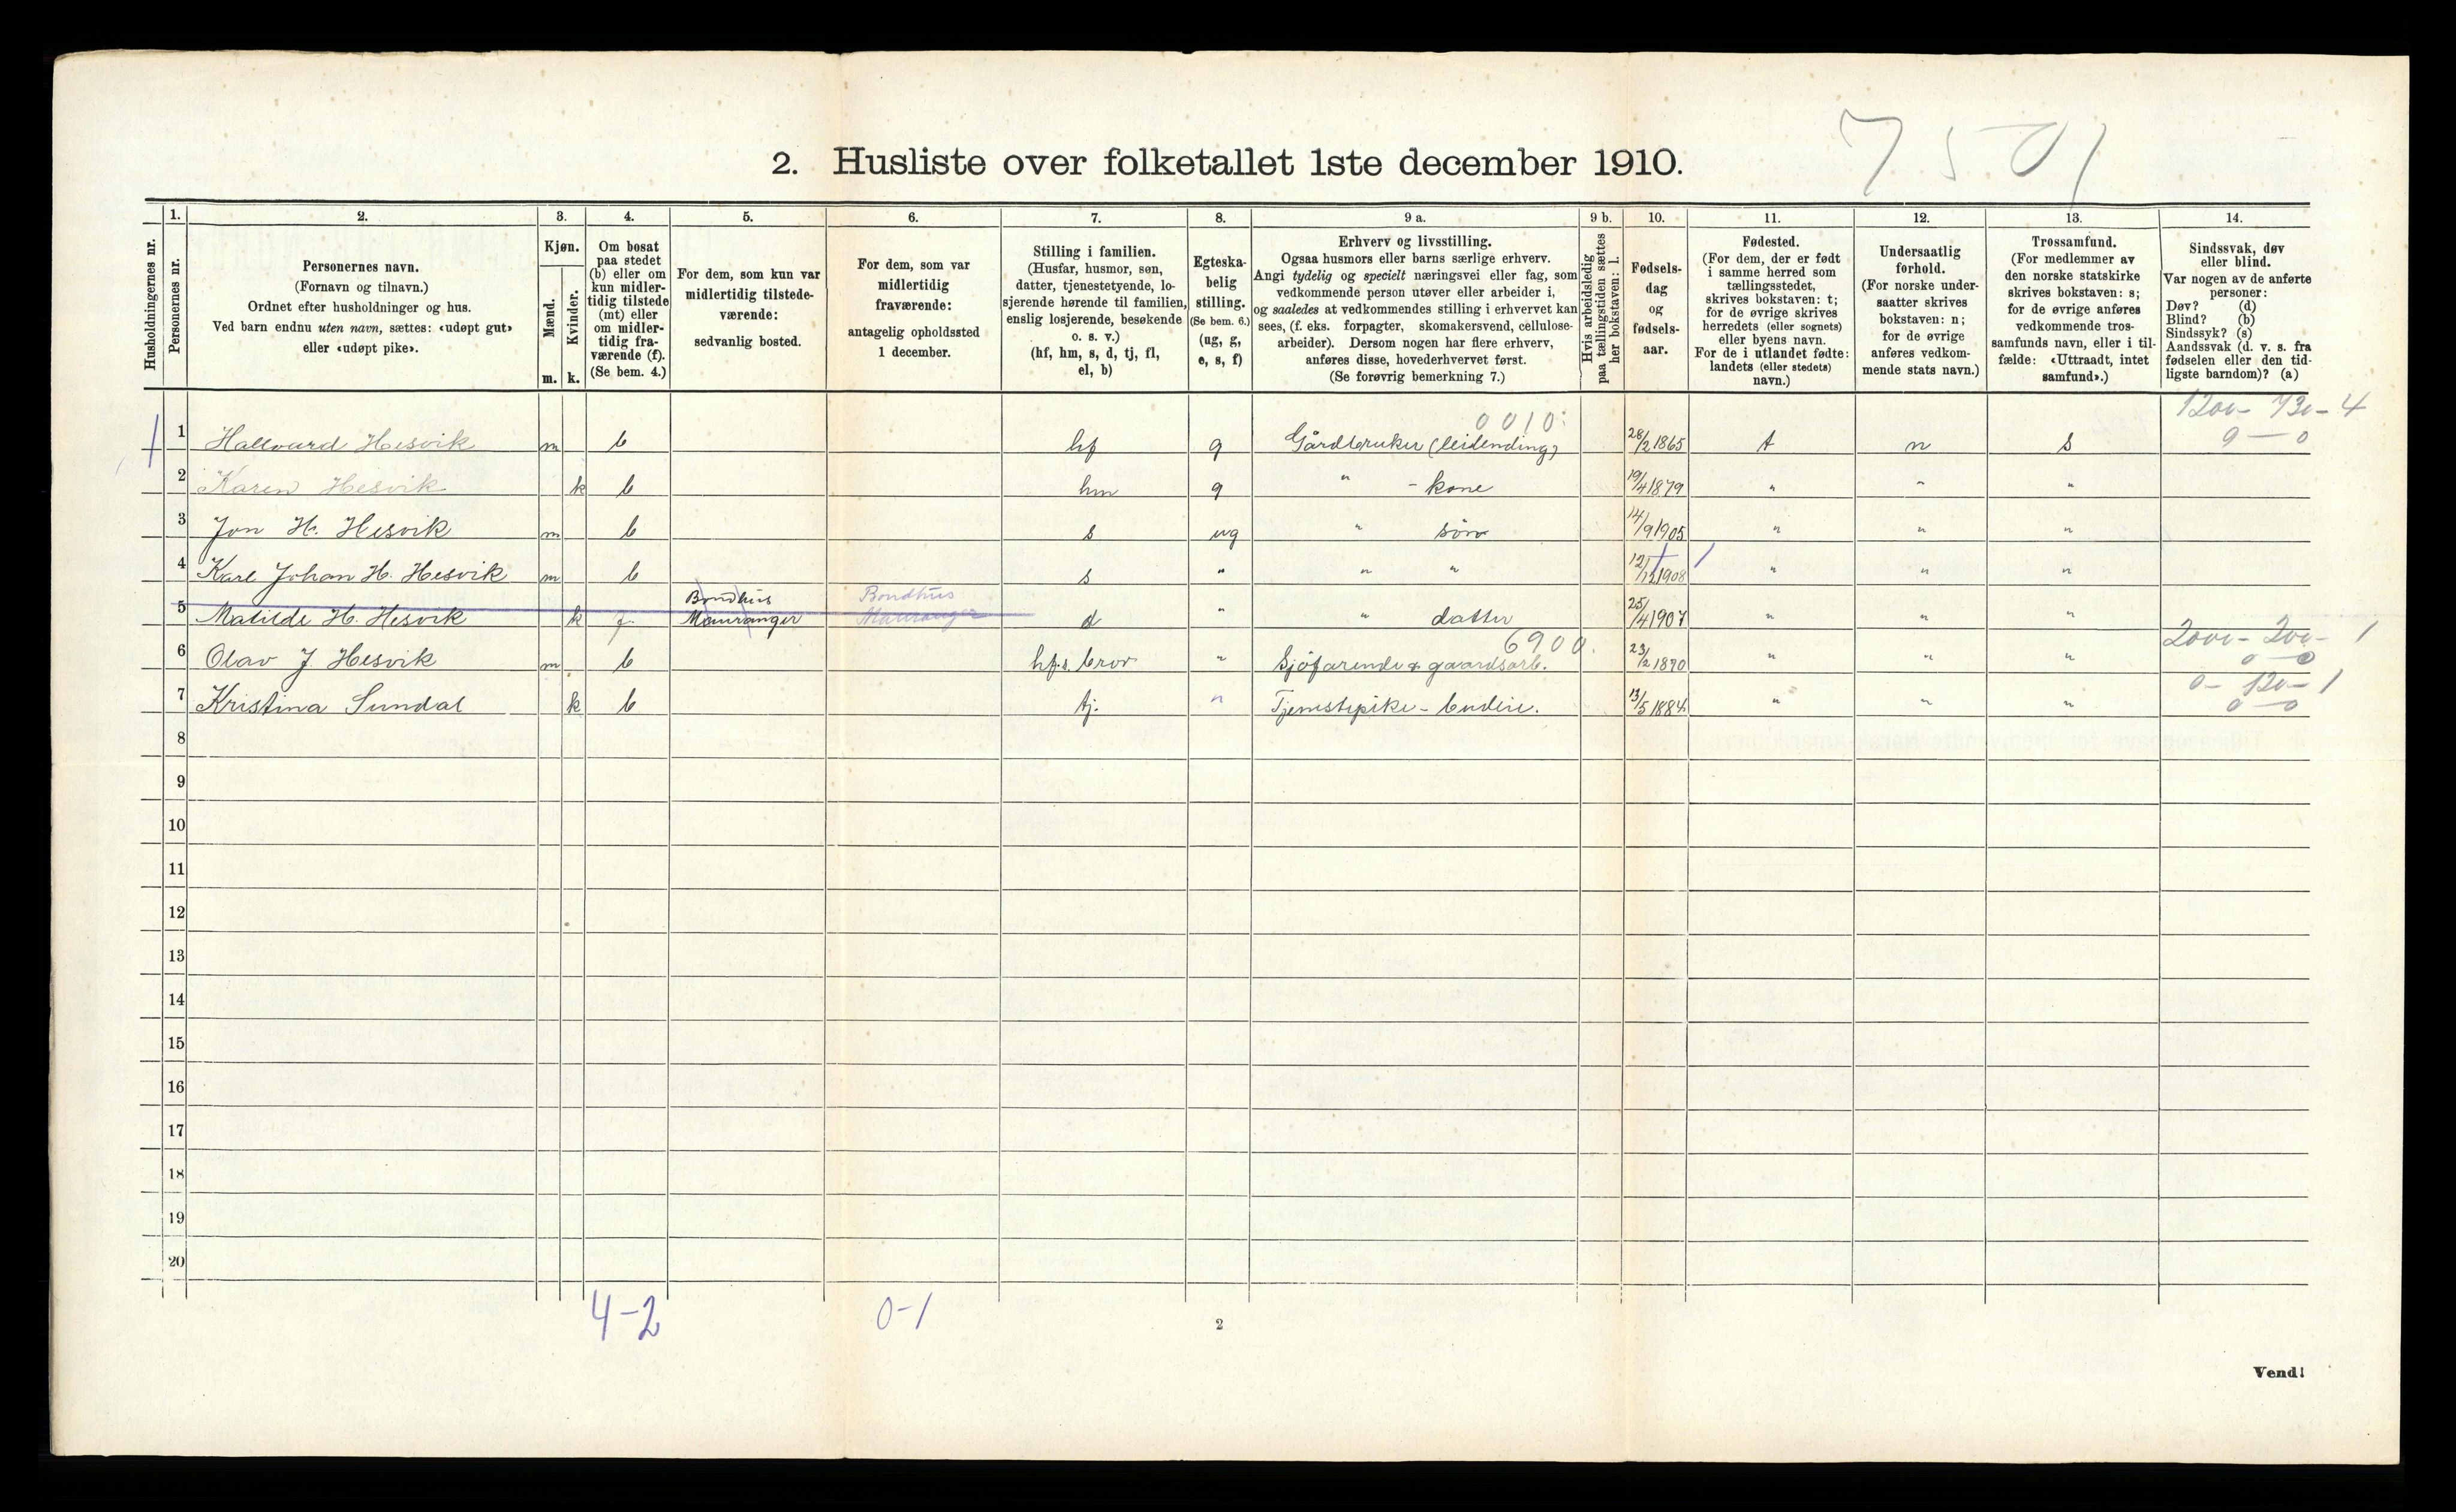 7501
2. Husliste over folketallet 1ste december 1910.
Husholdningernes nr.
1.
Personernes nr.
2.
Personernes navn.
(Fornavn og tilnavn.)
Ordnet efter husholdninger og hus.
Ved barn endnu uten navn, sættes: «udøpt gut»
eller «udøpt pike».
3.
Kjøn.
Mænd.
Kvinder.
m. k.
4.
Om bosat
paa stedet
(b) eller om
kun midler-
tidig tilstede
(mt) eller
om midler-
tidig fra-
værende (f).
(Se bem. 4.)
5.
For dem, som kun var
midlertidig tilstede-
værende:
sedvanlig bosted.
6.
For dem, som var
midlertidig
fraværende:
antagelig opholdssted
1 december.
7.
Stilling i familien.
(Husfar, husmor, søn,
datter, tjenestetyende, lo-
sjerende hørende til familien,
enslig losjerende, besøkende
o. s. v.)
(hf, hm, s, d, tj, fl,
el, b)
8.
Egteska-
belig
stilling.
(Se bem. 6.)
(ug, g,
e, s, f)
9 a.
Erhverv og livsstilling.
Ogsaa husmors eller barns særlige erhverv.
Angi tydelig og specielt næringsvei eller fag, som
vedkommende person utøver eller arbeider i,
og saaledes at vedkommendes stilling i erhvervet kan
sees, (f. eks. forpagter, skomakersvend, cellulose-
arbeider). Dersom nogen har flere erhverv,
anføres disse, hovederhvervet først.
(Se forøvrig bemerkning 7.)
9 b.
Hvis arbeidsledig
paa tællingstiden sættes
her bokstaven: l.
10.
Fødsels-
dag
og
fødsels-
aar.
11.
Fødested.
(For dem, der er født
i samme herred som
tællingsstedet,
skrives bokstaven: t;
for de øvrige skrives
herredets (eller sognets)
eller byens navn.
For de i utlandet fødte:
landets (eller stedets)
navn.)
12.
Undersaatlig
forhold.
(For norske under-
saatter skrives
bokstaven: n;
for de øvrige
anføres vedkom-
mende stats navn.)
13.
Trossamfund.
(For medlemmer av
den norske statskirke
skrives bokstaven: s;
for de øvrige anføres
vedkommende tros-
samfunds navn, eller i til-
fælde: «Uttraadt, intet
samfund».)
14.
Sindssvak, døv
eller blind.
Var nogen av de anførte
personer:
Døv? (d)
Blind? (b)
Sindssyk? (s)
Aandssvak (d. v. s. fra
fødselen eller den tid-
ligste barndom)? (a)
0010 1200 - 730 - 4
1 Hallvard Hesvik m b hf g Gårdbruker (leilending) 28/2 1865 t n s 0 — 0
2 Karen Hesvik k b hm g " - kone 19/4 1879 " " "
3 Jon H. Hesvik m b s ug " søn 14/9 1905 " " "
4 Karl Johan H. Hesvik m b s " " " 12/12 1908 " " "
Bondhus Bondhus
5 Matilde H. Hesvik k f. Mauranger Mauranger d " " datter 25/4 1907 " " "
6900. 2000 - 200 - 1
6 Olav J. Hesvik m b hf.s. bror " Sjøfarende & gaardsarb. 23/2 1870 " " " 0 — 0
0 - 120 - 1
7 Kristina Sundal k b tj. " Tjenestepike - budeie. 13/5 1884 " " " 0 — 0
8
9
10
11
12
13
14
15
16
17
18
19
20
4-2 0-1
2
Vend!